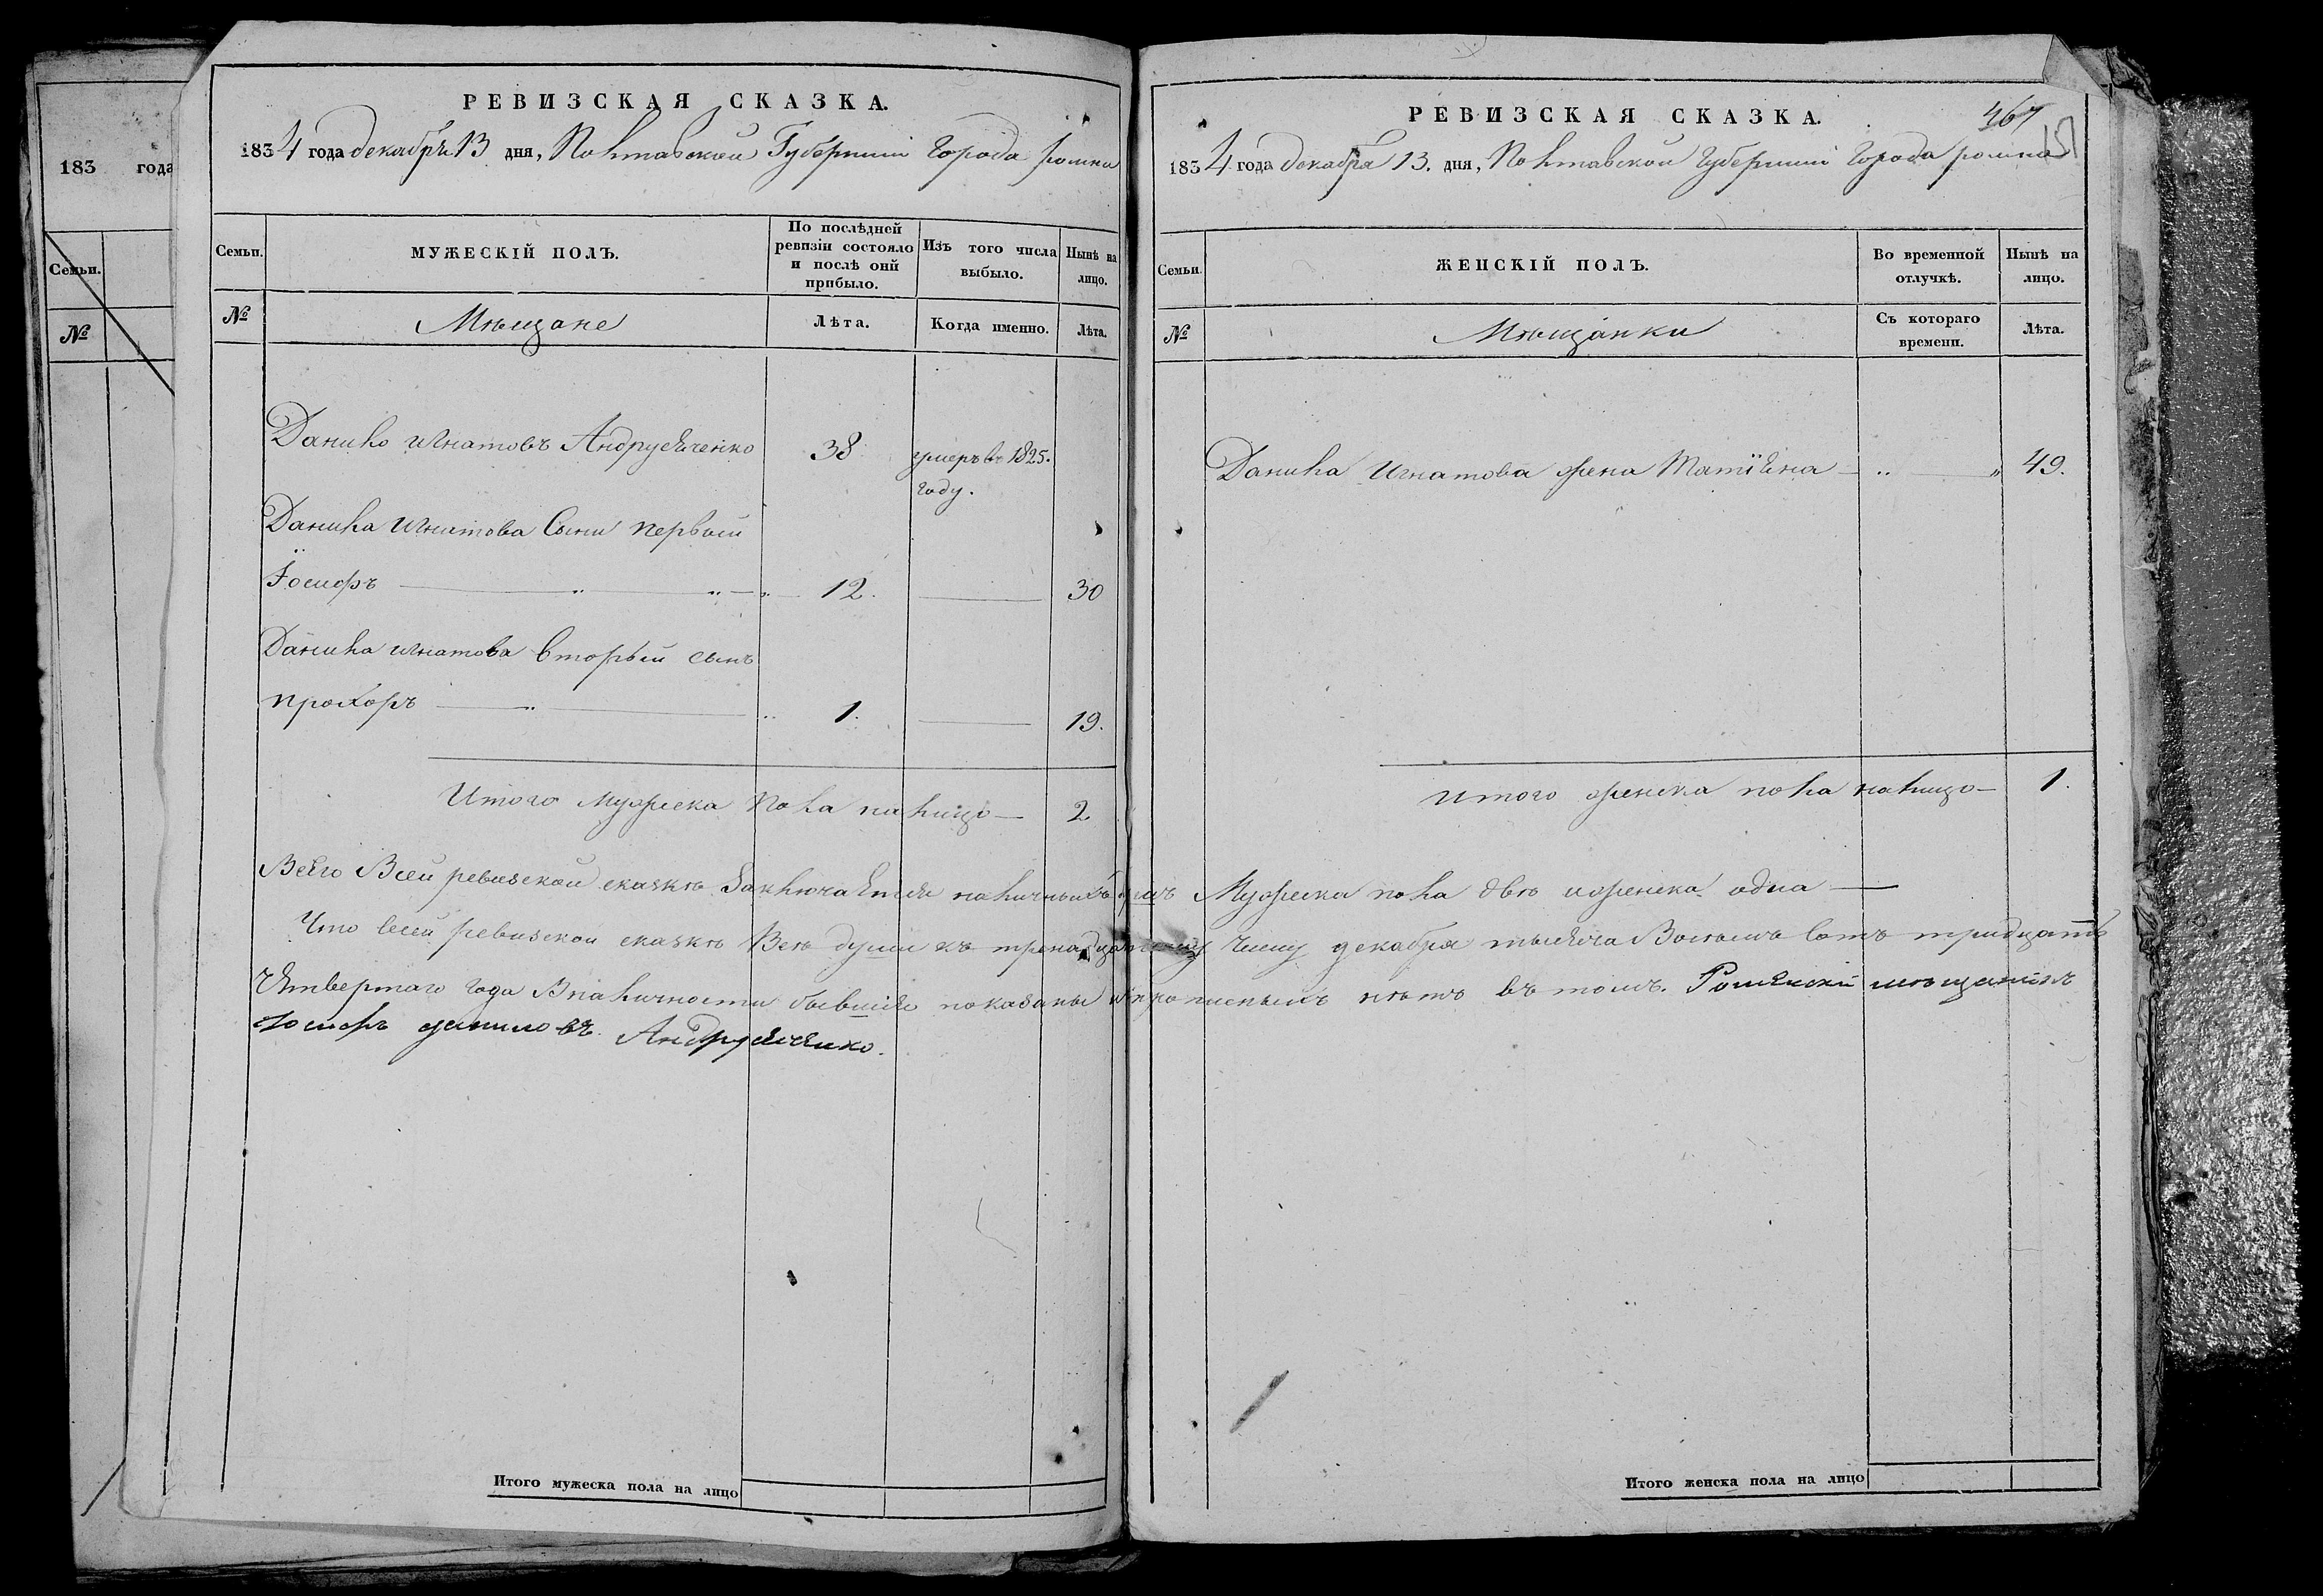 183 года
Семьи.
№
РЕВИЗСКАЯ СКАЗКА.
1834 года декабря 13 дня, Полтавской Губернии Города ромна
Семьи.
МУЖЕСКІЙ ПОЛЪ.
По послѣдней ревизіи состояло и послѣ оной прибыло.
Изъ того числа выбыло.
Нынѣ на лицо.
№
Мѣщане
Лѣта.
Когда именно.
Лѣта.
Данило игнатовъ Андрусяченко 38 умеръ въ 1825.
году.
Данила игнатова Сынъ первый
Іосифъ 12. 30
Данила игнатова вторый сынъ
прохоръ 1. 19.
Итого мужеска пола налицо 2
РЕВИЗСКАЯ СКАЗКА.
467
1834 года декабря 13. дня, Полтавской Губернии Города ромна
Семьи.
ЖЕНСКІЙ ПОЛЪ.
Во временной отлучкѣ.
Нынѣ на лицо.
№
Мѣщанки
Съ котораго времени.
Лѣта.
Данила Игнатова жена Татіяна 49.
итого женска пола налицо 1.
Всего Всей ревизской сказкѣ Заключается наличныхъ Мужеска пола двѣ иженска одна
Что всей ревизской сказкѣ Всѣ души къ тренадцатому числу декабря тысяча Восемь сотъ тридцать
четвертаго года Вналичности бывшія показаны ипрописныхъ нѣтъ въ томъ. Роменский мѣщанинъ
Іосифъ даниловъ Андрусяченко.
Итого мужеска пола на лицо
Итого женска пола на лицо